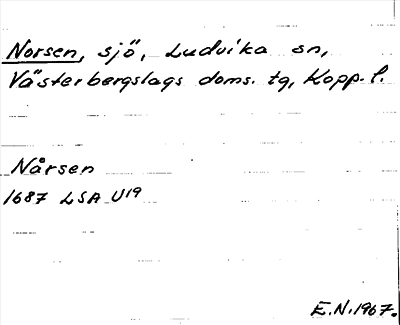 Norsen, sjö, Ludvika sn,
Västerbergslags doms. tg, Kopp. l.
Nårsen
1687 LSA U19
E.N. 1967.